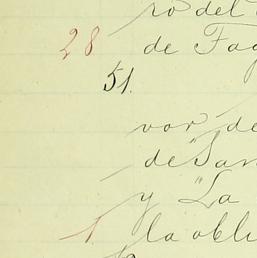 ro del
28 de Fa
51.
vor de
de "San
y "La
1. la obli